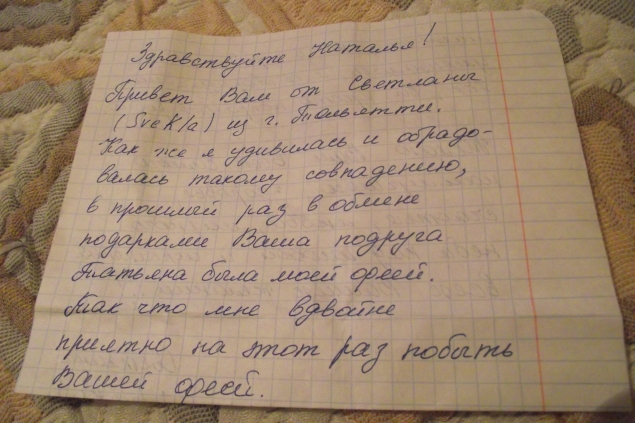 Здравствуйте Наталья!
Привет Вам от Светланы
(SveKla) из г. Тольятти.
Как же я удивилась и обрадо-
валась такому совпадению,
в прошлый раз в обмене
подарками Ваша подруга
Татьяна была моей феей.
Так что мне вдвойне
приятно на этот раз побыть
Вашей феей.